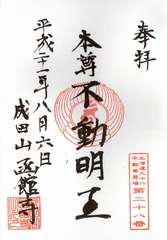 奉拝
北海道三十六
不動尊霊場
第二十八番
本尊不動明王
平成二十一年八月六日
成田山函館寺